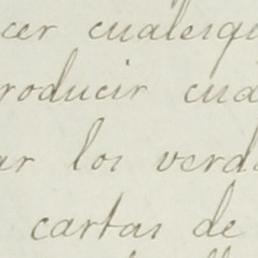 cer cualesqu
roducir cua
ar los verda
cartas de